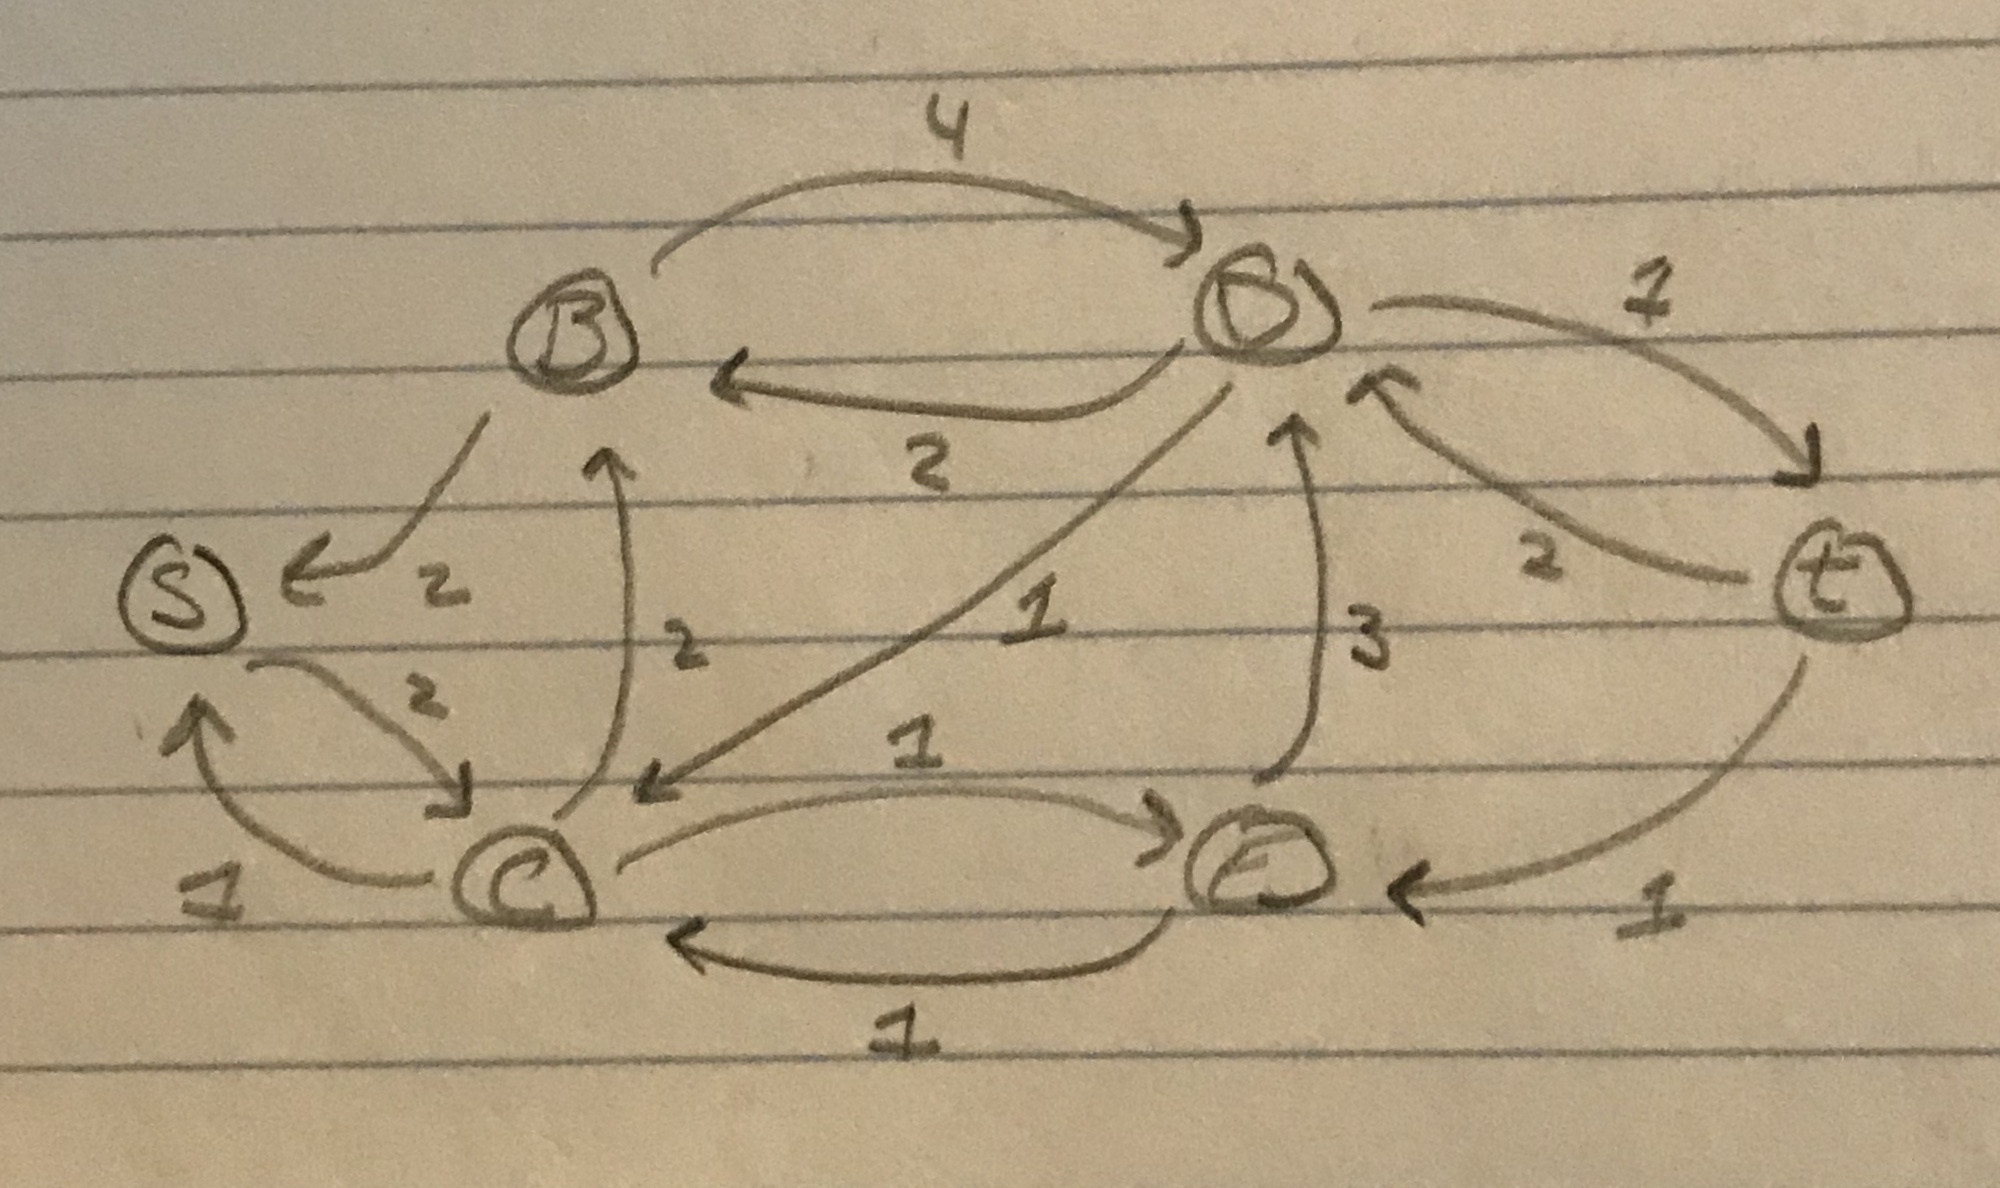 4
B
D
1
2
2
S
2
2
1
2
3
t
1
C
E
1
1
1